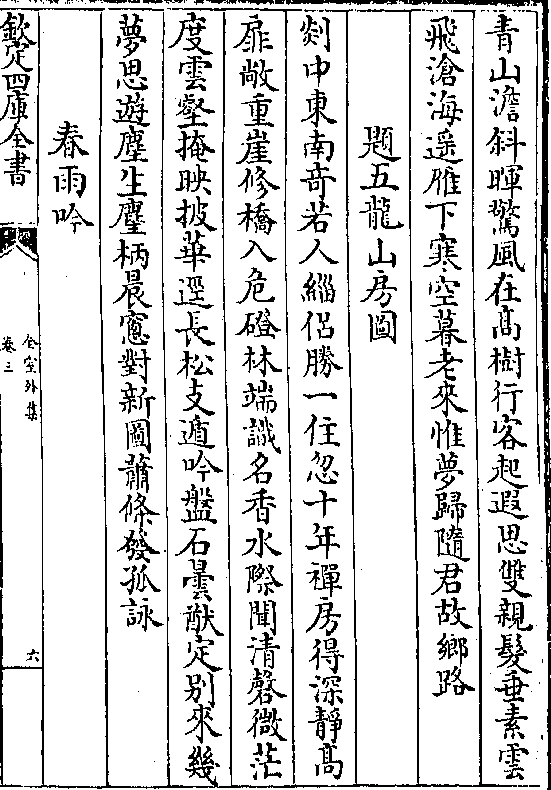 青山澹斜暉驚風在髙樹行客起遐思雙親髪垂素雲
飛滄海遥雁下寒空暮老來惟夢歸隨君故鄉路
題五龍山房圖
剡中東南竒若人緇侣勝一住忽十年禪房得深靜髙
扉敞重崖修橋入危磴林端識名香水際聞清磬微茫
度雲壑掩映披華逕長松支遁吟盤石曇猷定别來幾
夢思遊塵生麈柄晨窻對新圖蕭條發孤詠
春雨吟
欽定四庫全書
全室外集
卷三
六